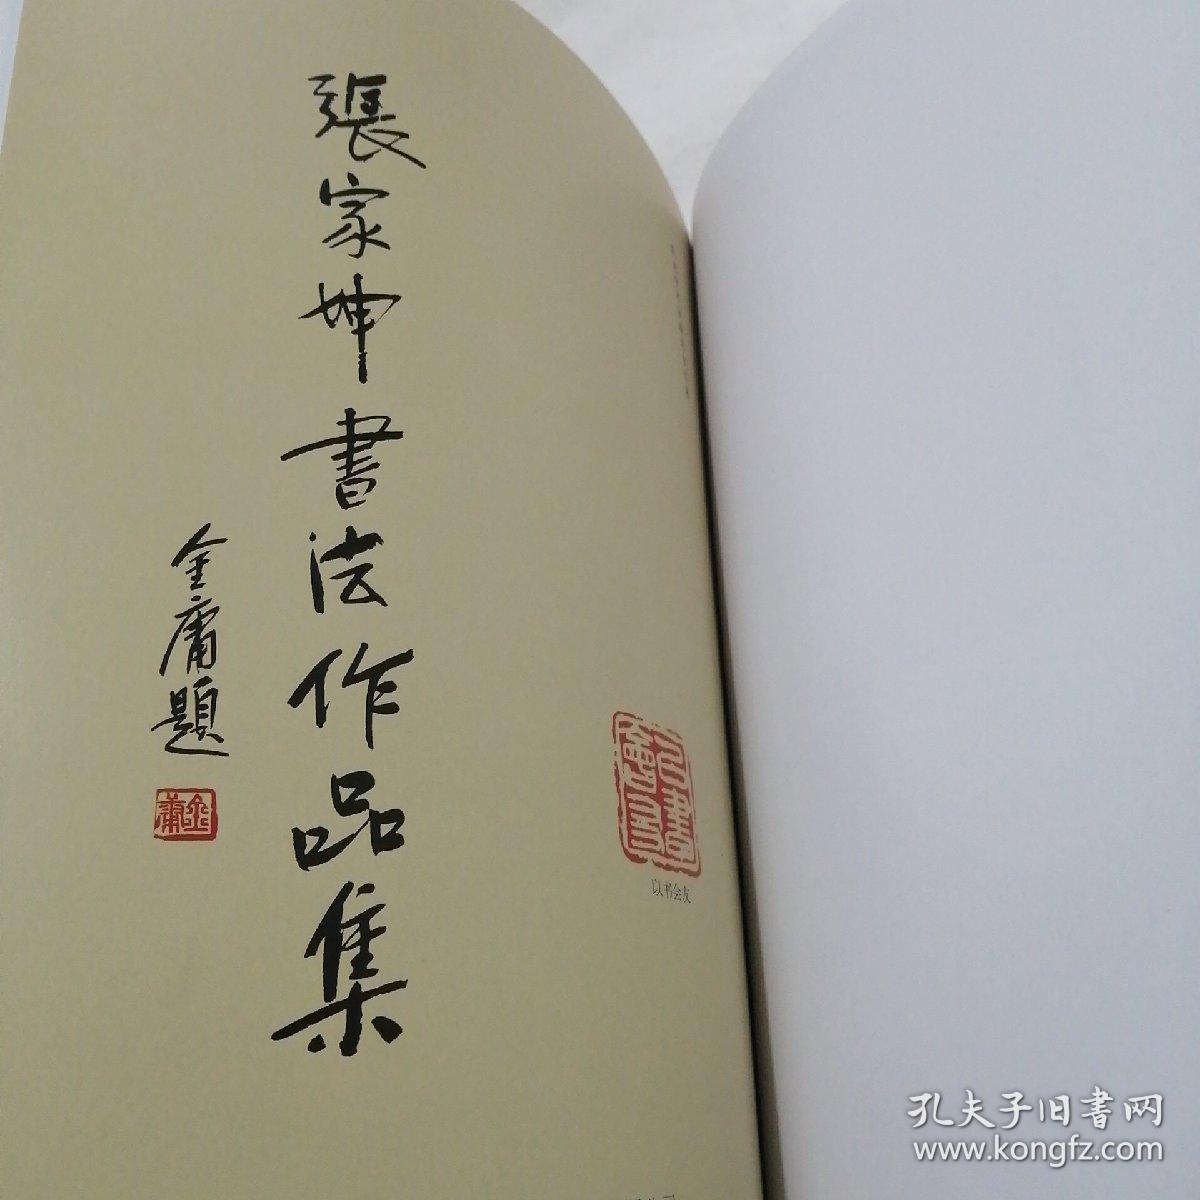 張家坤書法作品集
金庸題
金庸
以書會友
以书会友
孔夫子旧書网
www.kongfz.com